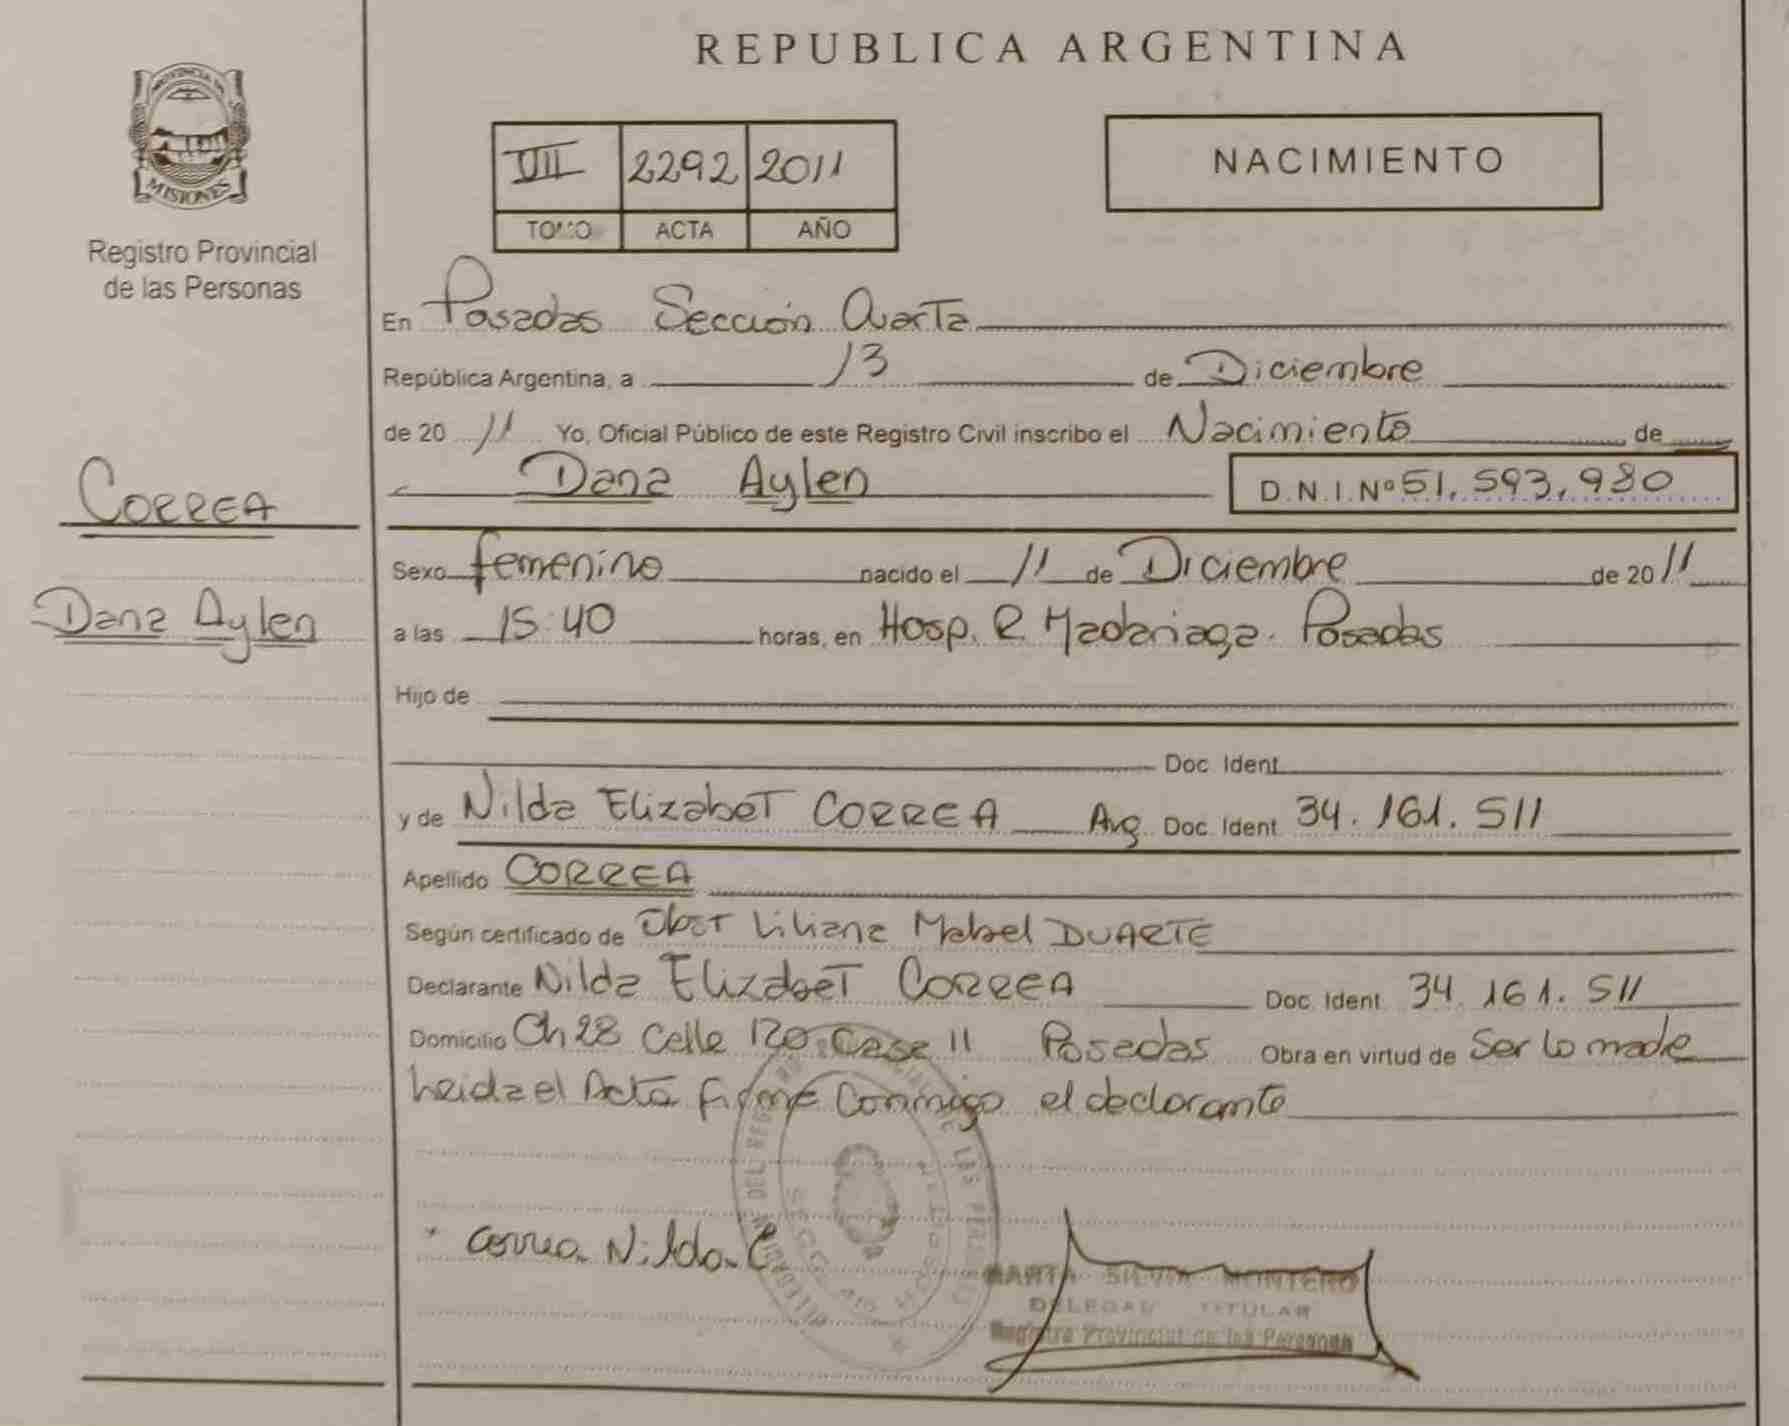 REPUBLICA ARGENTINA
PROVINCIA DE
MISIONES
Registro Provincial
de las Personas
VIII 2292 2011
TOMO ACTA AÑO
NACIMIENTO
En Posadas Sección Cuarta
República Argentina, a 13 de Diciembre
de 20 11 Yo, Oficial Público de este Registro Civil inscribo el Nacimiento de
Dana Aylen D.N.I. Nº 51.593.980
CORREA
Dana Aylen
Sexo femenino nacido el 11 de Diciembre de 20 11
a las 15:40 horas, en Hosp. R Madariaga. Posadas
Hijo de
Doc. Ident.
y de Nilda Elizabet CORREA Arg. Doc. Ident. 34.161.511
Apellido CORREA
Según certificado de Obst Liliana Mabel DUARTE
Declarante Nilda Elizabet CORREA Doc. Ident. 34.161.511
Domicilio Ch 28 Calle 120 Casa 11 Posadas Obra en virtud de Ser la madre
Leida el Acta firma Conmigo el declarante
Correa Nilda E
MARTA SILVIA MONTERO
DELEGAD TITULAR
Registro Provincial de las Personas